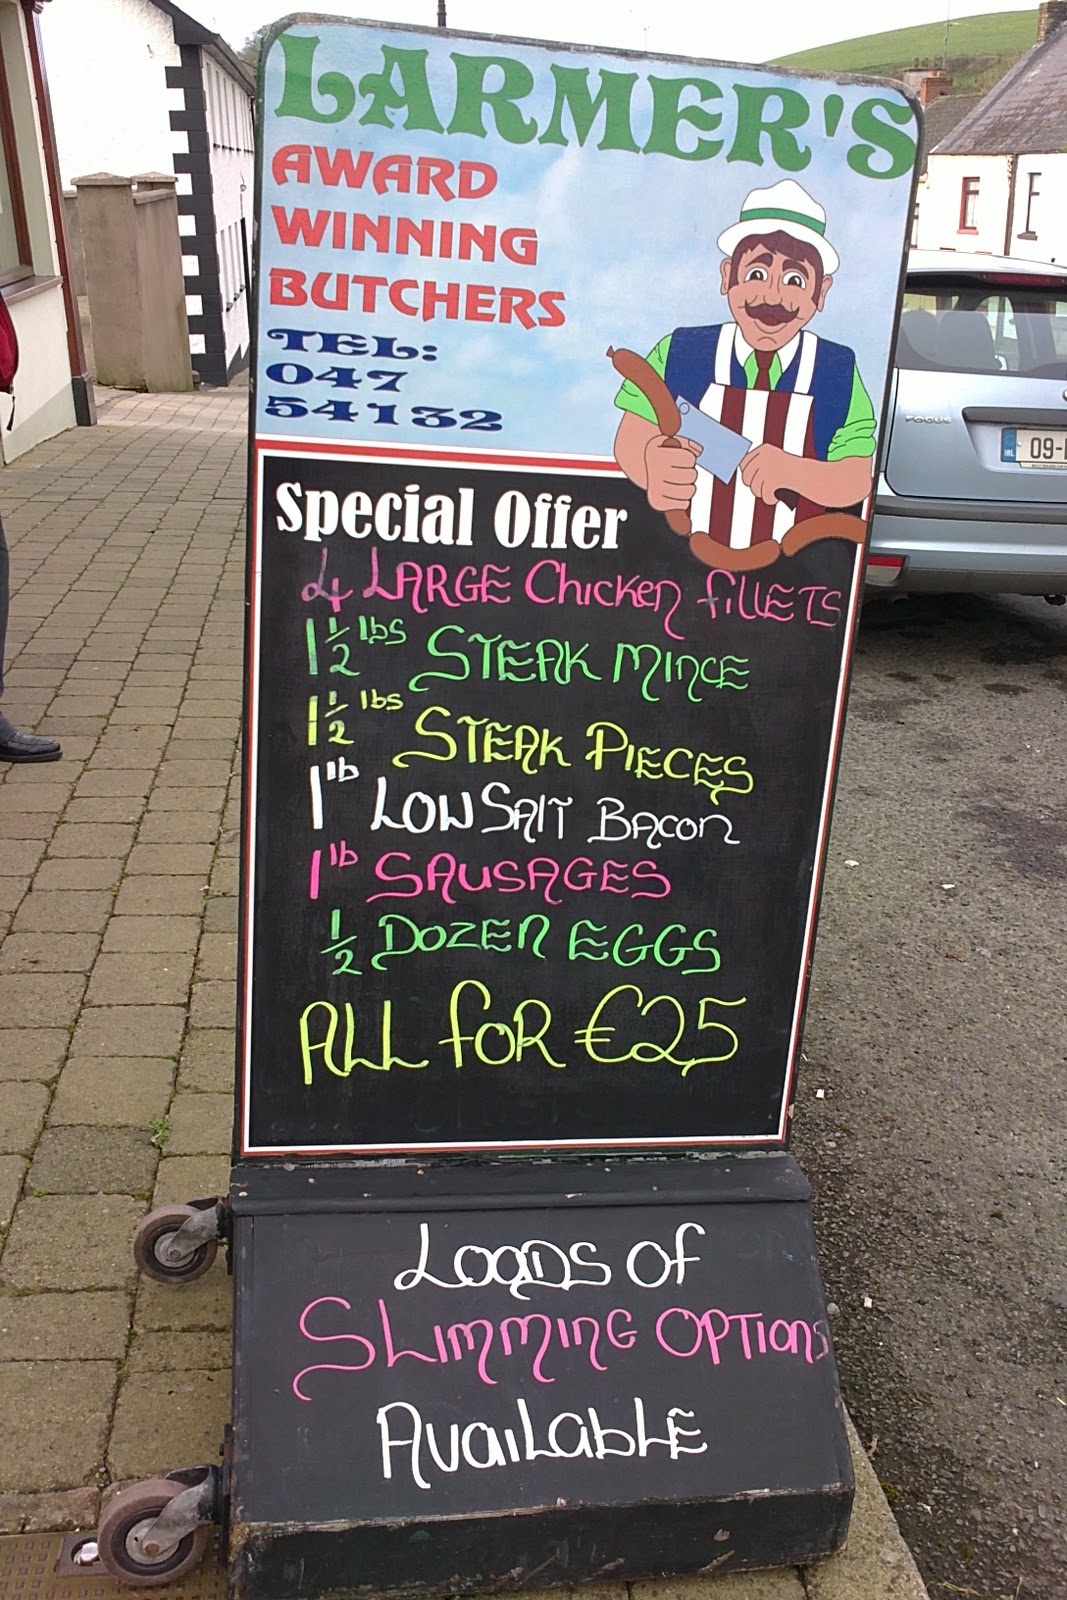 LARMER'S
AWARD
WINNING
BUTCHERS
TEL:
047
54132
Special Offer
4 LARGE Chicken fillETS
1 1/2 lbs STEAK MINCE
1 1/2 lbs STEAK PIECES
1 lb LOW SAlT BAcon
1 lb SAUSAGES
1/2 DOZEN EGGS
ALL foR €25
LOADS Of
SLimming OPTIONS
AvailablE
FOCUS
IRL 09-